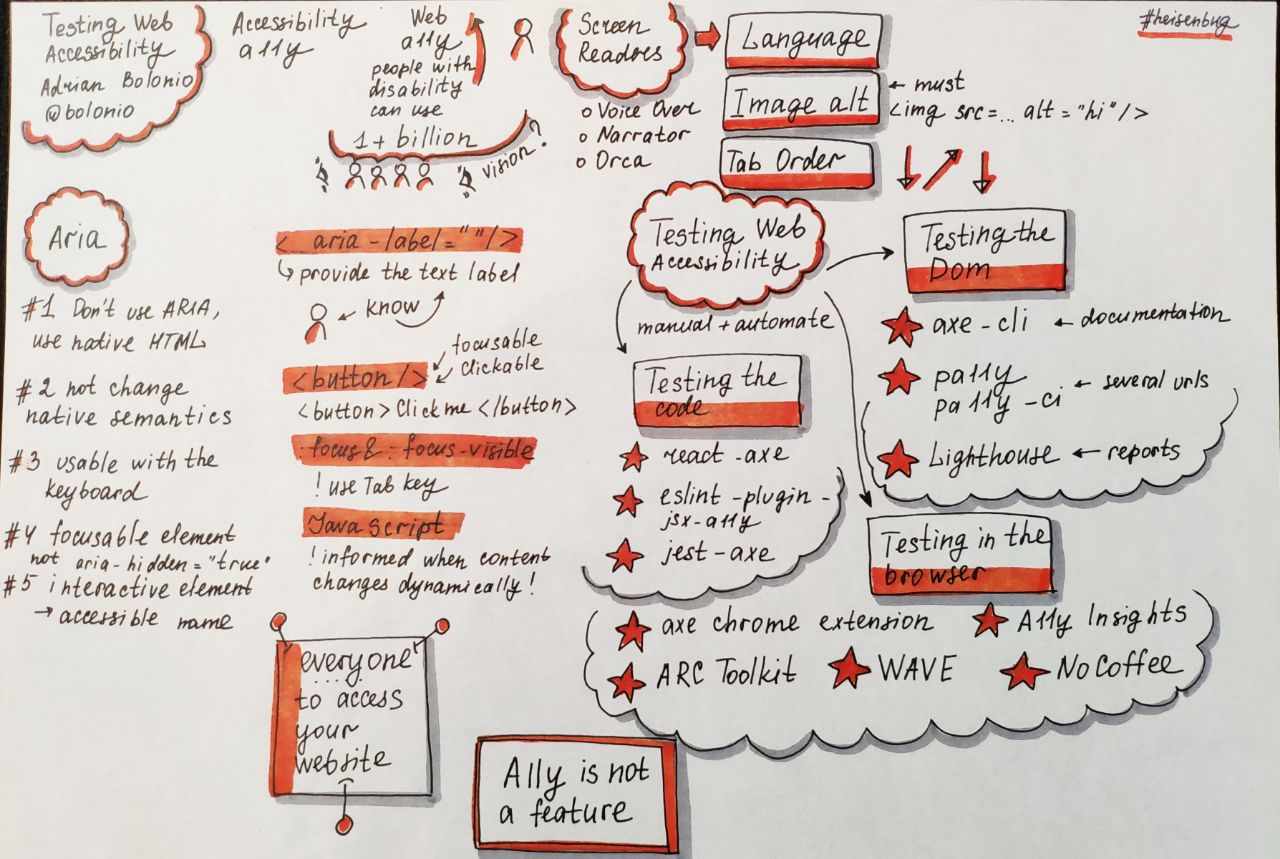 Testing Web
Accessibility
Adrian Bolonio
@bolonio
Accessibility
a11y
Web
a11y
people with
disability
can use
1+ billion
vision?
Screen
Readres
o Voice Over
o Narrator
o Orca
Language
Image alt
← must
<img src=... alt="hi"/>
Tab Order
#heisenbug
Aria
#1 Don't use ARIA,
use native HTML
#2 not change
native semantics
#3 usable with the
keyboard
#4 focusable element
not aria-hidden="true"
#5 interactive element
→ accessible name
< aria-label=""/>
↳ provide the text label
← know
<button/>
focusable
clickable
<button>Click me</button>
:focus & :focus-visible
! use Tab key
JavaScript
! informed when content
changes dynamically!
everyone
to access
your
website
A11y is not
a feature
Testing Web
Accessibility
manual + automate
Testing the
code
★ react-axe
★ eslint-plugin-
jsx-a11y
★ jest-axe
Testing the
Dom
★ axe-cli ← documentation
★ pa11y
pa11y-ci ← several urls
★ Lighthouse ← reports
Testing in the
browser
★ axe chrome extension ★ A11y Insights
★ ARC Toolkit ★ WAVE ★ NoCoffee